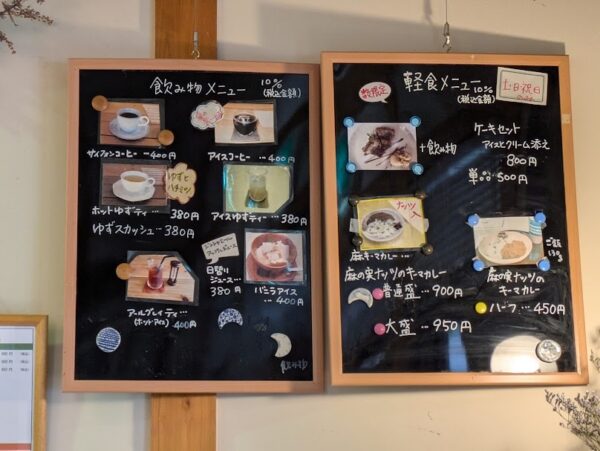 飲み物メニュー 10%
(税込金額)
サイフォンコーヒー …400円
アイスコーヒー …400円
ゆずと
ハチミツ
ホットゆずティ… 380円
アイスゆずティー…380円
ゆずスカッシュ…380円
日替り
ジュース…
380円
バニラアイス
…400円
アールグレイティ…
(ホットアイス) 400円
軽食メニュー 10%
(税込金額)
土日祝日
数量限定
+飲み物
ケーキセット
アイスとクリーム添え
800円
単品 500円
ナッツ
入
麻キーマカレー…
麻の実ナッツのキーマカレー
普通盛…900円
大盛…950円
ご飯
130g
麻の実ナッツの
キーマカレー
ハーフ…450円